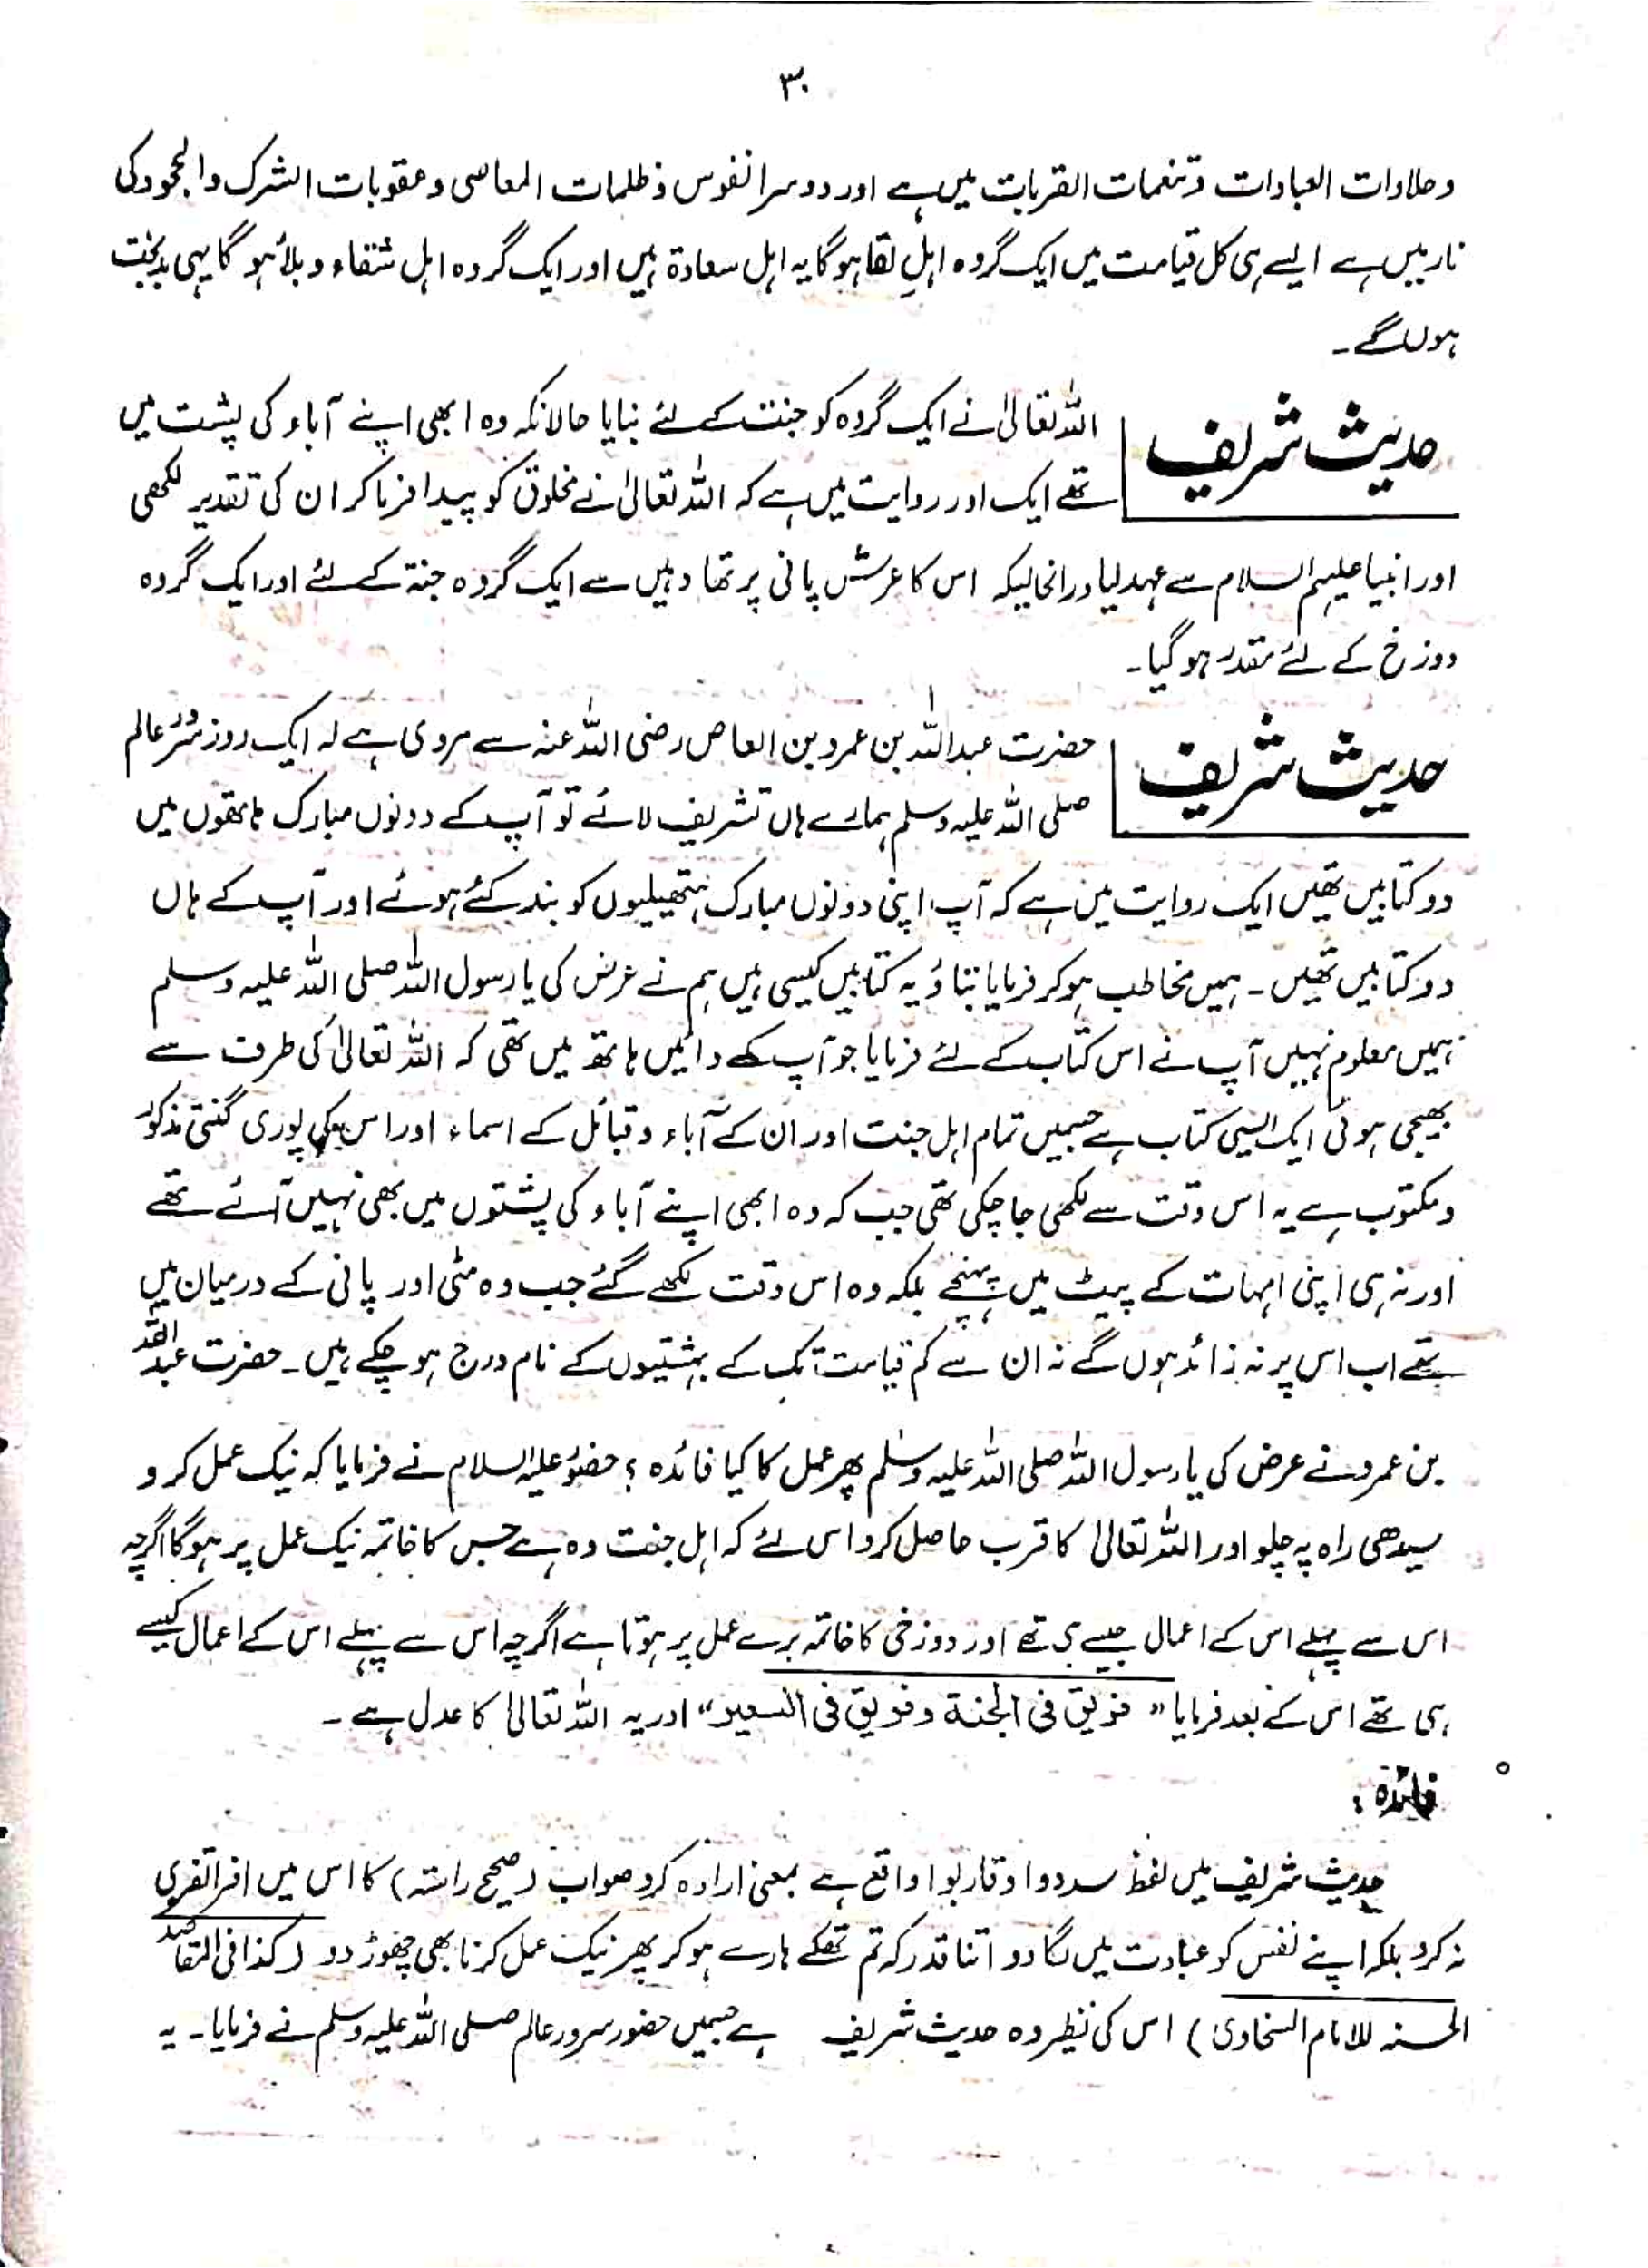 ۳۰
وحلاوات العبادات وتنغمات القربات میں ہے اور دوسرا نفوس وظلمات المعاصی وعقوبات الشرک والجحود کی
نار میں ہے ایسے ہی کل قیامت میں ایک گروہ اہلِ لقا ہوگا یہ اہل سعادۃ ہیں اور ایک گروہ اہل شقاء وبلأ ہوگا یہی بدبخت
ہوں گے۔
حدیث شریف
اللہ تعالیٰ نے ایک گروہ کو جنت کے لئے بنایا حالانکہ وہ ابھی اپنے آباء کی پشت میں
تھے ایک اور روایت میں ہے کہ اللہ تعالیٰ نے مخلوق کو پیدا فرما کر ان کی تقدیر لکھی
اور انبیا علیہم السلام سے عہد لیا درانحالیکہ اس کا عرش پانی پر تھا وہیں سے ایک گروہ جنۃ کے لئے اور ایک گروہ
دوزخ کے لئے مقدر ہو گیا۔
حدیث شریف
حضرت عبد اللہ بن عمرو بن العاص رضی اللہ عنہ سے مروی ہے کہ ایک روز سرور عالم
صلی اللہ علیہ وسلم ہمارے ہاں تشریف لائے تو آپ کے دونوں مبارک ہاتھوں میں
دو کتابیں تھیں ایک روایت میں ہے کہ آپ اپنی دونوں مبارک ہتھیلیوں کو بند کئے ہوئے اور آپ کے ہاں
دو کتابیں تھیں۔ ہمیں مخاطب ہو کر فرمایا بتاؤ یہ کتابیں کیسی ہیں ہم نے عرض کی یا رسول اللہ صلی اللہ علیہ وسلم
ہمیں معلوم نہیں آپ نے اس کتاب کے لئے فرمایا جو آپ کے دائیں ہاتھ میں تھی کہ اللہ تعالیٰ کی طرف سے
بھیجی ہوئی ایک ایسی کتاب ہے جسمیں تمام اہل جنت اور ان کے آباء وقبائل کے اسماء اور اس کی پوری گنتی مذکور
ومکتوب ہے یہ اس وقت سے لکھی جا چکی تھی جب کہ وہ ابھی اپنے آباء کی پشتوں میں بھی نہیں آئے تھے
اور نہ ہی اپنی امہات کے پیٹ میں پہنچے بلکہ وہ اس وقت لکھے گئے جب وہ مٹی اور پانی کے درمیان میں
تھے اب اس پر نہ زائد ہوں گے نہ ان سے کم قیامت تک کے بہشتیوں کے نام درج ہو چکے ہیں۔ حضرت عبداللہ
بن عمرو نے عرض کی یا رسول اللہ صلی اللہ علیہ وسلم پھر عمل کا کیا فائدہ؟ حضور علیہ السلام نے فرمایا کہ نیک عمل کرو
سیدھی راہ پہ چلو اور اللہ تعالیٰ کا قرب حاصل کرو اس لئے کہ اہل جنت وہ ہے جس کا خاتمہ نیک عمل پر ہوگا اگرچہ
اس سے پہلے اس کے اعمال جیسے ہی تھے اور دوزخی کا خاتمہ برے عمل پر ہوتا ہے اگرچہ اس سے پہلے اس کے اعمال کیسے
ہی تھے اس کے بعد فرمایا " فریق فی الجنة وفریق فی السعیر" اور یہ اللہ تعالیٰ کا عدل ہے۔
فائدہ :
حدیث شریف میں لفظ سددوا وقاربوا واقع ہے بمعنی ارادہ کرو صواب (صحیح راستہ) کا اس میں افراتفری
نہ کرو بلکہ اپنے نفس کو عبادت میں لگا دو اتنا قدر کہ تم تھکے ہارے ہو کر پھر نیک عمل کرنا بھی چھوڑ دو (کذا فی المقاصد
الحسنہ للامام السخاوی) اس کی نظیر وہ حدیث شریف ہے جسمیں حضور سرور عالم صلی اللہ علیہ وسلم نے فرمایا۔ یہ